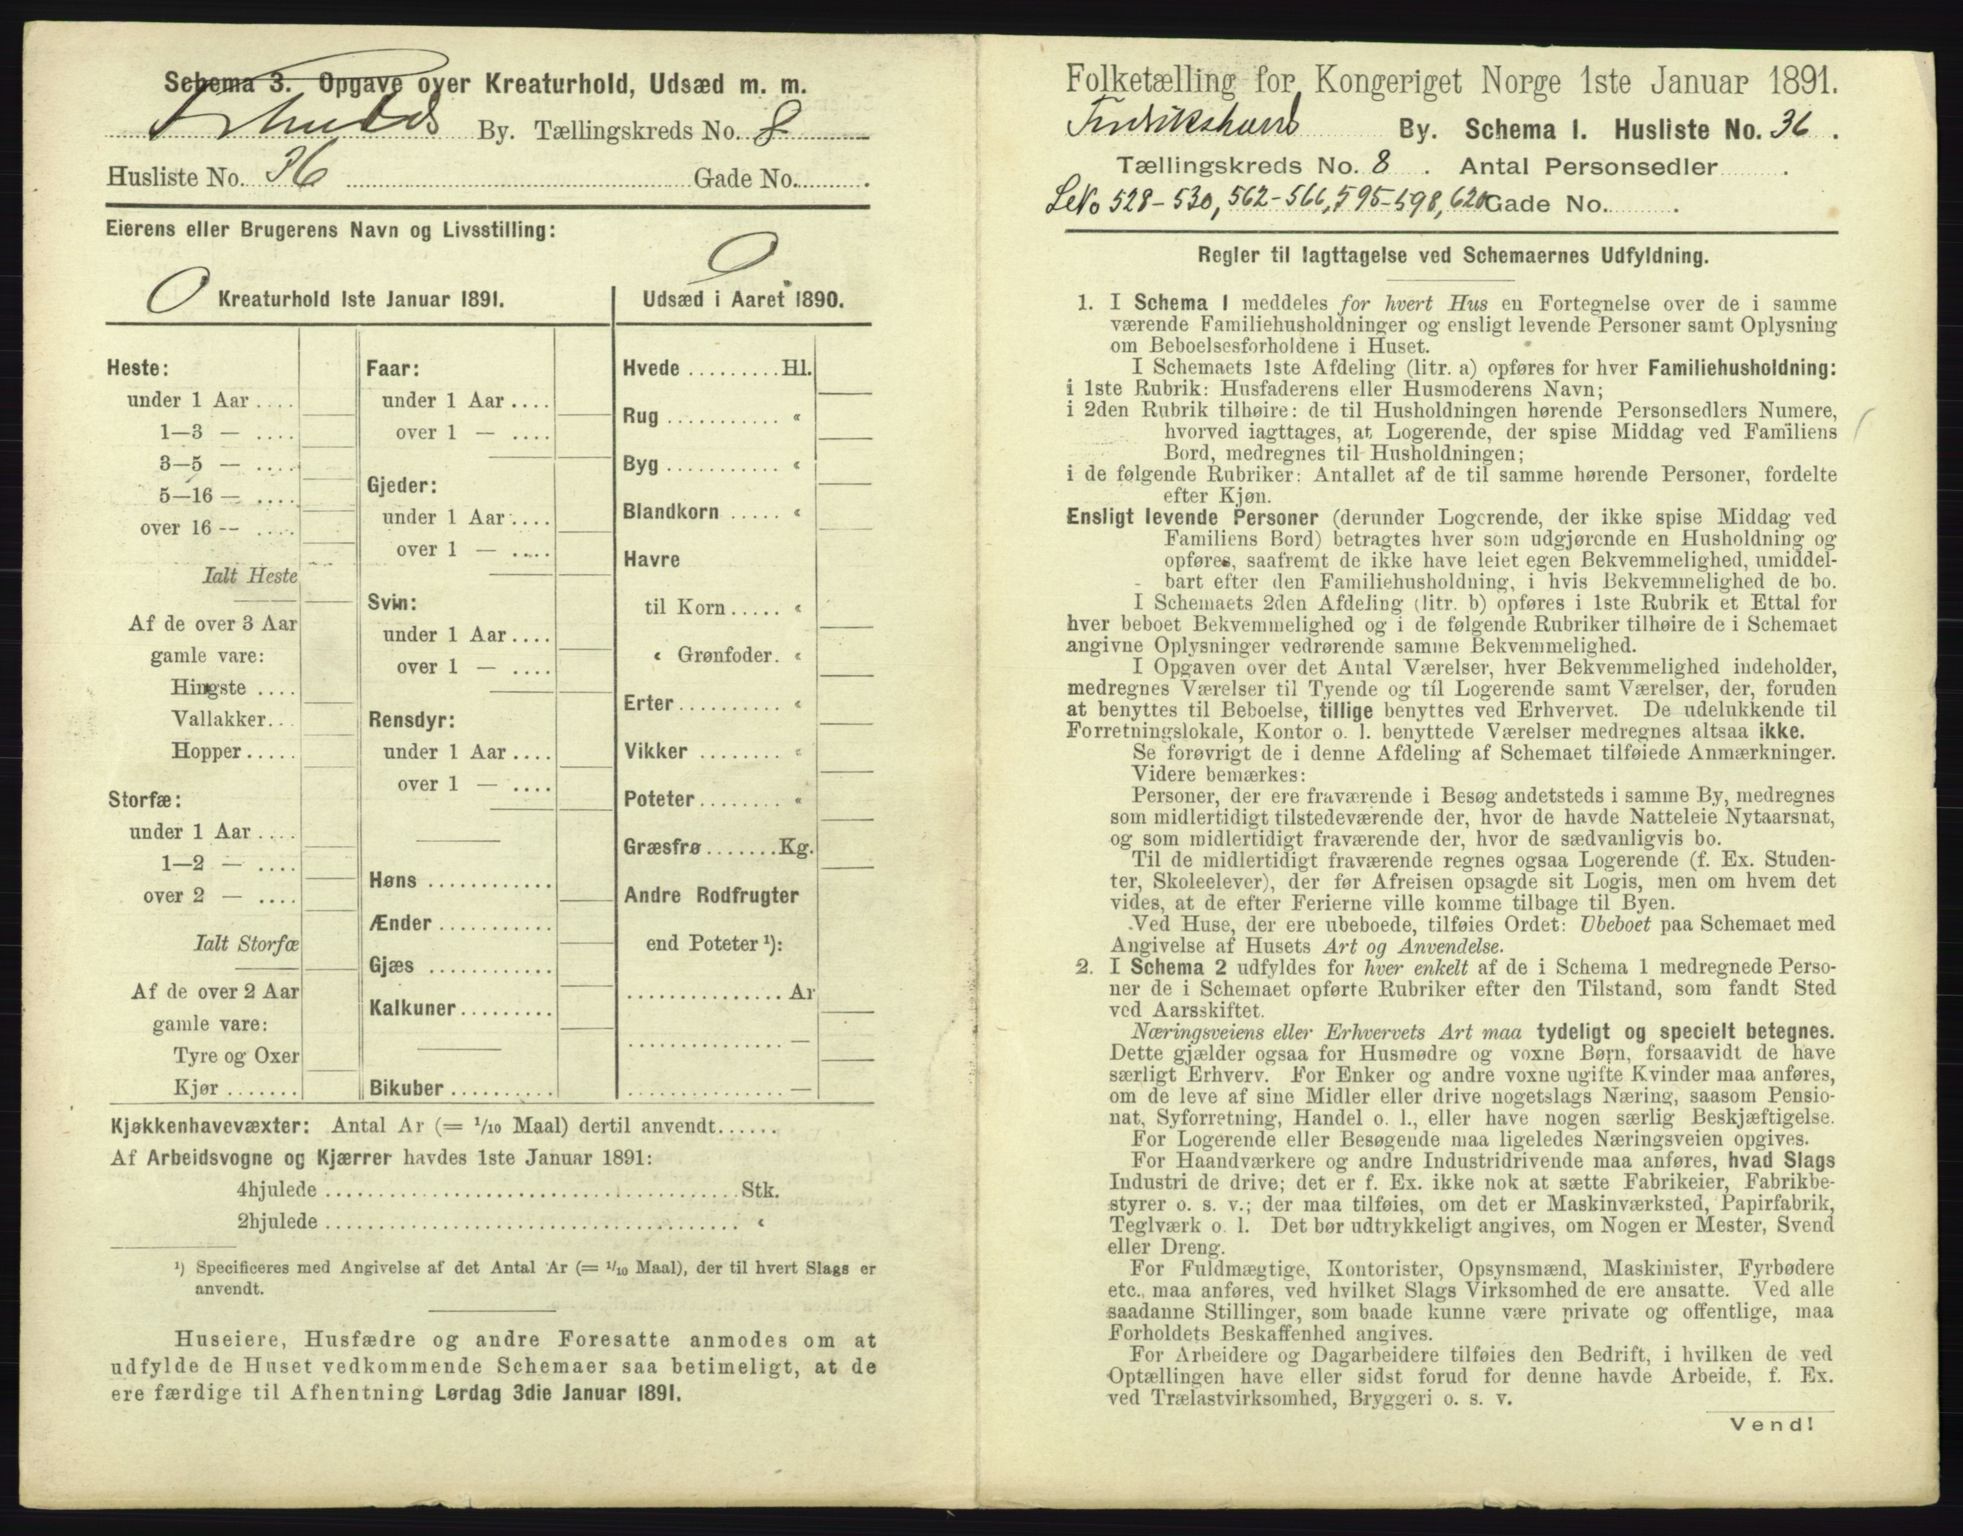 Schema 3. Opgave over Kreaturhold, Udsæd m. m.
By. Tællingskreds No. 8
Husliste No. 36 Gade No. .
Eierens eller Brugerens Navn og Livsstilling:
0 0
Kreaturhold 1ste Januar 1891.
Heste:
under 1 Aar ....
1—3 — ....
3—5 — ....
5—16 — ....
over 16 — ....
Ialt Heste
Af de over 3 Aar
gamle vare:
Hingste ....
Vallakker...
Hopper.....
Storfæ:
under 1 Aar ....
1—2 — ....
over 2 — ....
Ialt Storfæ
Af de over 2 Aar
gamle vare:
Tyre og Oxer
Kjør .......
Faar:
under 1 Aar ....
over 1 — ....
Gjeder:
under 1 Aar ....
over 1 — ....
Svin:
under 1 Aar ....
over 1 — ....
Rensdyr:
under 1 Aar ....
over 1 — ....
Høns ............
Ænder ...........
Gjæs ............
Kalkuner.........
Bikuber ..........
Udsæd i Aaret 1890.
Hvede .........Hl.
Rug ........... «
Byg ........... «
Blandkorn ..... «
Havre
til Korn..... «
« Grønfoder. «
Erter.......... «
Vikker ........ «
Poteter........ «
Græsfrø .......Kg.
Andre Rodfrugter
end Poteter ¹):
............... Ar
............... —
............... —
Kjøkkenhavevæxter: Antal Ar (= 1/10 Maal) dertil anvendt......
Af Arbeidsvogne og Kjærrer havdes 1ste Januar 1891:
4hjulede ........................................ Stk.
2hjulede ........................................ «
¹) Specificeres med Angivelse af det Antal Ar (= 1/10 Maal), der til hvert Slags er
anvendt.
Huseiere, Husfædre og andre Foresatte anmodes om at
udfylde de Huset vedkommende Schemaer saa betimeligt, at de
ere færdige til Afhentning Lørdag 3die Januar 1891.
Folketælling for Kongeriget Norge 1ste Januar 1891.
Fredrikshald By. Schema I. Husliste No. 36.
Tællingskreds No. 8. Antal Personsedler .
LeNo 528-530, 562-566, 595-598, 620 Gade No. .
Regler til Iagttagelse ved Schemaernes Udfyldning.
1. I Schema I meddeles for hvert Hus en Fortegnelse over de i samme
værende Familiehusholdninger og ensligt levende Personer samt Oplysning
om Beboelsesforholdene i Huset.
I Schemaets 1ste Afdeling (litr. a) opføres for hver Familiehusholdning:
i 1ste Rubrik: Husfaderens eller Husmoderens Navn;
i 2den Rubrik tilhøire: de til Husholdningen hørende Personsedlers Numere,
hvorved iagttages, at Logerende, der spise Middag ved Familiens
Bord, medregnes til Husholdningen;
i de følgende Rubriker: Antallet af de til samme hørende Personer, fordelte
efter Kjøn.
Ensligt levende Personer (derunder Logerende, der ikke spise Middag ved
Familiens Bord) betragtes hver som udgjørende en Husholdning og
opføres, saafremt de ikke have leiet egen Bekvemmelighed, umiddel-
bart efter den Familiehusholdning, i hvis Bekvemmelighed de bo.
I Schemaets 2den Afdeling (litr. b) opføres i 1ste Rubrik et Ettal for
hver beboet Bekvemmelighed og i de følgende Rubriker tilhøire de i Schemaet
angivne Oplysninger vedrørende samme Bekvemmelighed.
I Opgaven over det Antal Værelser, hver Bekvemmelighed indeholder,
medregnes Værelser til Tyende og til Logerende samt Værelser, der, foruden
at benyttes til Beboelse, tillige benyttes ved Erhvervet. De udelukkende til
Forretningslokale, Kontor o. l. benyttede Værelser medregnes altsaa ikke.
Se forøvrigt de i denne Afdeling af Schemaet tilføiede Anmærkninger.
Videre bemærkes:
Personer, der ere fraværende i Besøg andetsteds i samme By, medregnes
som midlertidigt tilstedeværende der, hvor de havde Natteleie Nytaarsnat,
og som midlertidigt fraværende der, hvor de sædvanligvis bo.
Til de midlertidigt fraværende regnes ogsaa Logerende (f. Ex. Studen-
ter, Skoleelever), der før Afreisen opsagde sit Logis, men om hvem det
vides, at de efter Ferierne ville komme tilbage til Byen.
Ved Huse, der ere ubeboede, tilføies Ordet: Ubeboet paa Schemaet med
Angivelse af Husets Art og Anvendelse.
2. I Schema 2 udfyldes for hver enkelt af de i Schema 1 medregnede Perso-
ner de i Schemaet opførte Rubriker efter den Tilstand, som fandt Sted
ved Aarsskiftet.
Næringsveiens eller Erhvervets Art maa tydeligt og specielt betegnes.
Dette gjælder ogsaa for Husmødre og voxne Børn, forsaavidt de have
særligt Erhverv. For Enker og andre voxne ugifte Kvinder maa anføres,
om de leve af sine Midler eller drive nogetslags Næring, saasom Pensio-
nat, Syforretning, Handel o. l., eller have nogen særlig Beskjæftigelse.
For Logerende eller Besøgende maa ligeledes Næringsveien opgives.
For Haandværkere og andre Industridrivende maa anføres, hvad Slags
Industri de drive; det er f. Ex. ikke nok at sætte Fabrikeier, Fabrikbe-
styrer o. s. v.; der maa tilføies, om det er Maskinværksted, Papirfabrik,
Teglværk o. l. Det bør udtrykkeligt angives, om Nogen er Mester, Svend
eller Dreng.
For Fuldmægtige, Kontorister, Opsynsmænd, Maskinister, Fyrbødere
etc. maa anføres, ved hvilket Slags Virksomhed de ere ansatte. Ved alle
saadanne Stillinger, som baade kunne være private og offentlige, maa
Forholdets Beskaffenhed angives.
For Arbeidere og Dagarbeidere tilføies den Bedrift, i hvilken de ved
Optællingen have eller sidst forud for denne havde Arbeide, f. Ex.
ved Trælastvirksomhed, Bryggeri o. s. v.
Vend!